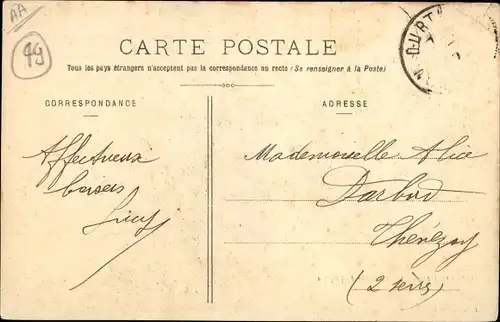 AA
49
CARTE POSTALE
Tous les pays étrangers n'acceptent pas la correspondance au recto (Se renseigner à la Poste)
CORRESPONDANCE
ADRESSE
Affectueux
baisers
Lucy
Mademoiselle Alice
Darbord
Thénezay
(2 Sèvres)